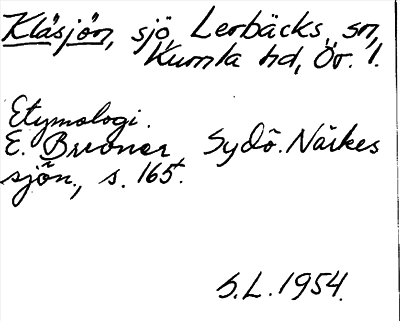 Klåsjön, sjö, Lerbäcks sn,
Kumla hd, Ör. l.
Etymologi.
E. Brevner Sydö. Närkes
sjön., s. 165.
S.L. 1954.